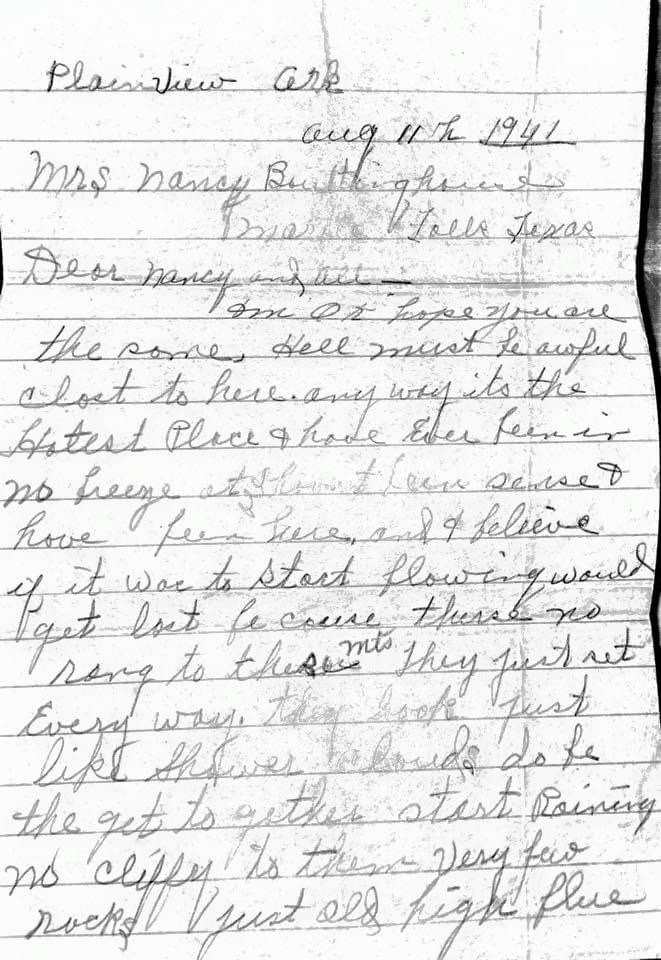 Plainview Ark
Aug 11th 1941
Mrs Nancy Boultinghouse
Marble Falls Texas
Dear Nancy and all —
Im Ok hope you are
the same, Hell must be awful
clost to here. any way its the
Hotest Place I have Ever been in
no breeze at all hasnt been sense I
have been here, and I believe
if it was to start blowing would
get lost be cause therse no
rang to these Mts They just set
Every way. they look just
like shower clouds do be
the get to gether start Raining
no cliffy to them very few
rocks just old high blue